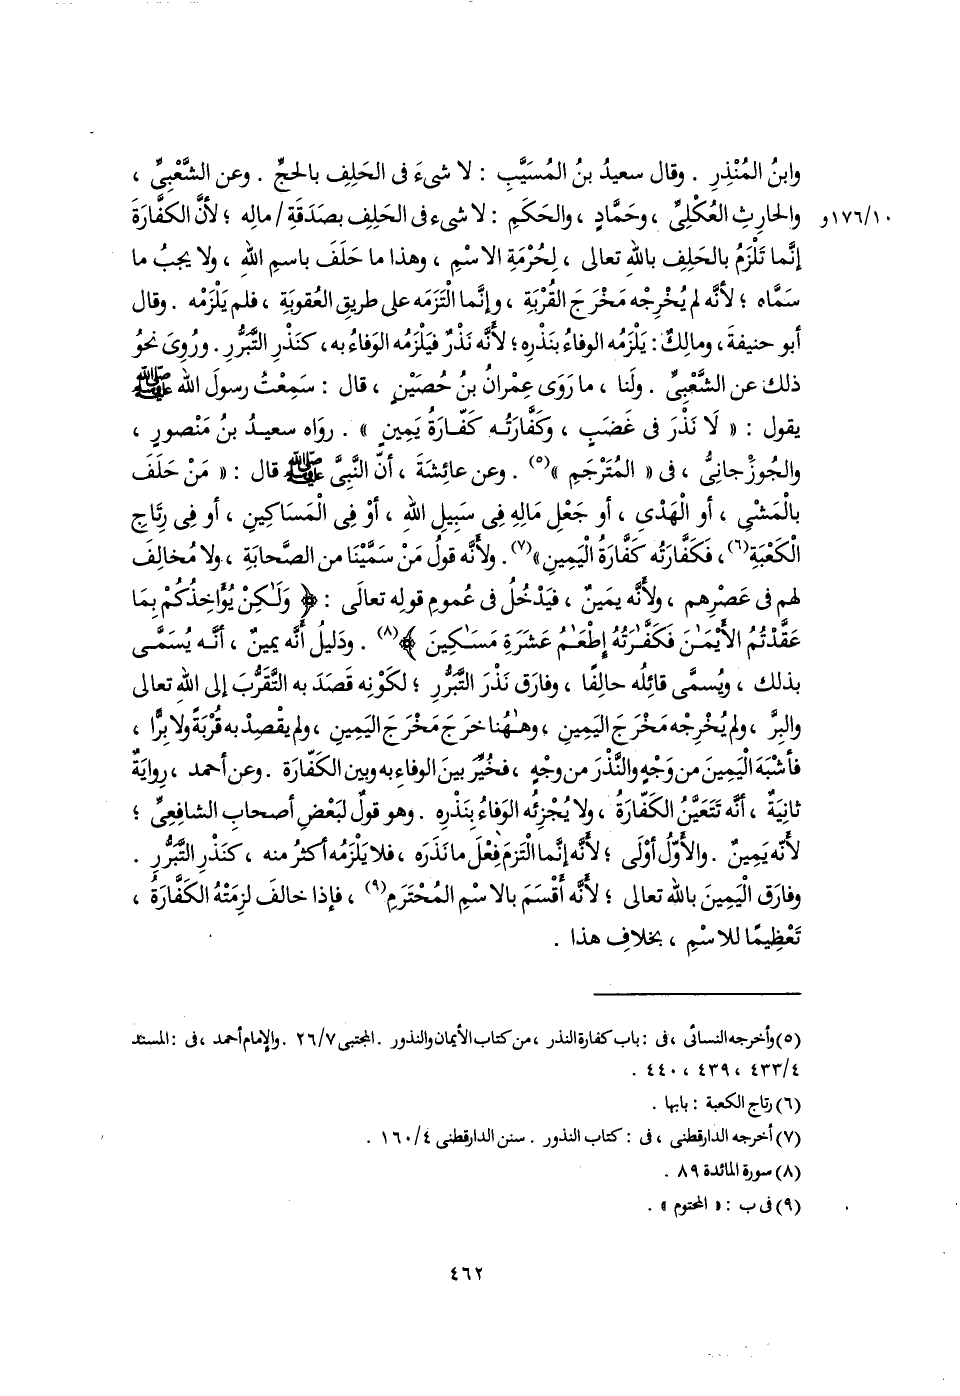 وابنُ المُنْذِرِ . وقال سعيدُ بنُ المُسَيَّبِ : لا شىءَ فى الحَلِفِ بالحجِّ . وعن الشَّعْبِىِّ ،
١٧٦/١٠و والحارِثِ العُكْلِىِّ ، وحَمَّادٍ ، والحَكَمِ : لا شىء فى الحَلِفِ بصَدَقَةِ / مالِه ؛ لأنَّ الكفَّارَةَ
إنَّما تَلْزَمُ بالحَلِفِ باللهِ تعالى ، لِحُرْمَةِ الاسْمِ ، وهذا ما حَلَفَ باسمِ اللهِ ، ولا يجبُ ما
سَمَّاه ؛ لأنَّه لم يُخْرِجْه مَخْرَجَ القُرْبَةِ ، وإنَّما الْتَزَمَه على طريقِ العُقوبَةِ ، فلم يَلْزَمْه . وقال
أبو حنيفةَ ، ومالِكٌ : يَلْزَمُه الوفاءُ بنَذْرِه ؛ لأنَّه نَذْرٌ فيَلْزَمُه الوَفاءُ به ، كنَذْرِ التَّبَرُّرِ . ورُوِىَ نحوُ
ذلك عن الشَّعْبِىِّ . ولَنا ، ما رَوَى عِمْرانُ بنُ حُصَيْنٍ ، قال : سَمِعْتُ رسولَ الله ﷺ
يقول : « لَا نَذْرَ فِى غَضَبٍ ، وكَفَّارَتُـه كَفّـارَةُ يَمِينٍ » . روَاه سعيـدُ بنُ مَنْصورٍ ،
والجُوزْجانِىُّ ، فى « المُتَرْجَمِ »(٥) . وعن عائِشَةَ ، أنَّ النَّبِىَّ ﷺ قال : « مَنْ حَلَفَ
بالْمَشْىِ ، أو الْهَدْىِ ، أو جَعْلِ مَالِهِ فِى سَبِيلِ اللهِ ، أوْ فِى الْمَسَاكِينِ ، أو فِى رِتَاجِ
الْكَعْبَةِ(٦) ، فَكَفَّارَتُه كَفَّارَةُ الْيَمِينِ»(٧) . ولأنَّه قولُ مَنْ سَمَّيْنَا من الصَّحابَةِ ، ولا مُخالِفَ
لهم فى عَصْرِهم ، ولأنَّه يمَينٌ ، فيَدْخُلُ فى عُمومِ قولِه تعالَى : ﴿ وَلَـٰكِنْ يُؤَاخِذُكُمْ بِمَا
عَقَّدْتُمُ الأَيْمَـٰنَ فَكَفَّـٰرَتُهُ إِطْعَـٰمُ عَشَرَةِ مَسَـٰكِينَ ﴾(٨) . ودَليلُ أنَّه يمينٌ ، أنَّـه يُسَمَّـى
بذلك ، ويُسمَّى قائِلُه حالِفًا ، وفارَق نَذْرَ التَّبَرُّرِ ؛ لكَوْنِه قصَدَ به التَّقَرُّبَ إلى اللهِ تعالى
والبِرَّ ، ولم يُخْرِجْه مَخْرَجَ اليَمِينِ ، وهـٰهُنا خرَجَ مَخْرَجَ اليَمِينِ ، ولم يقْصِدْ به قُرْبَةً ولا بِرًّا ،
فأشْبَهَ الْيَمِينَ من وَجْهٍ والنَّذْرَ من وجْهٍ ، فخُيِّرَ بينَ الوفاءِ به وبين الكفّارَةِ . وعن أحمد ، رِوايَةٌ
ثانِيَةٌ ، أنَّه تَتَعَيَّنُ الكَفَّارَةُ ، ولا يُجْزِئُه الوَفاءُ بِنَذْرِه . وهو قولٌ لبَعْضِ أصحابِ الشافِعِىِّ ؛
لأنَّه يَمِينٌ . والأوَّلُ أوْلَى ؛ لأنَّه إنَّما التزمَ فِعْلَ ما نَذَرَه ، فلا يَلْزَمُه أكثرُ منه ، كنَذْرِ التَّبَرُّرِ .
وفارَق الْيَمِينَ باللهِ تعالى ؛ لأنَّه أقْسَمَ بالاسْمِ المُحْتَرَمِ(٩) ، فإذا خالفَ لزِمَتْهُ الكَفَّارَةُ ،
تَعْظِيمًا للاسْمِ ، بخلافِ هذا .
(٥) وأخرجه النسائى ، فى : باب كفارة النذر ، من كتاب الأيمان والنذور . المجتبى ٢٦/٧ . والإمام أحمد ، فى : المسند
٤٣٣/٤ ، ٤٣٩ ، ٤٤٠ .
(٦) رتاج الكعبة : بابها .
(٧) أخرجه الدارقطنى ، فى : كتاب النذور . سنن الدارقطنى ١٦٠/٤ .
(٨) سورة المائدة ٨٩ .
(٩) فى ب : « المختوم » .
٤٦٢